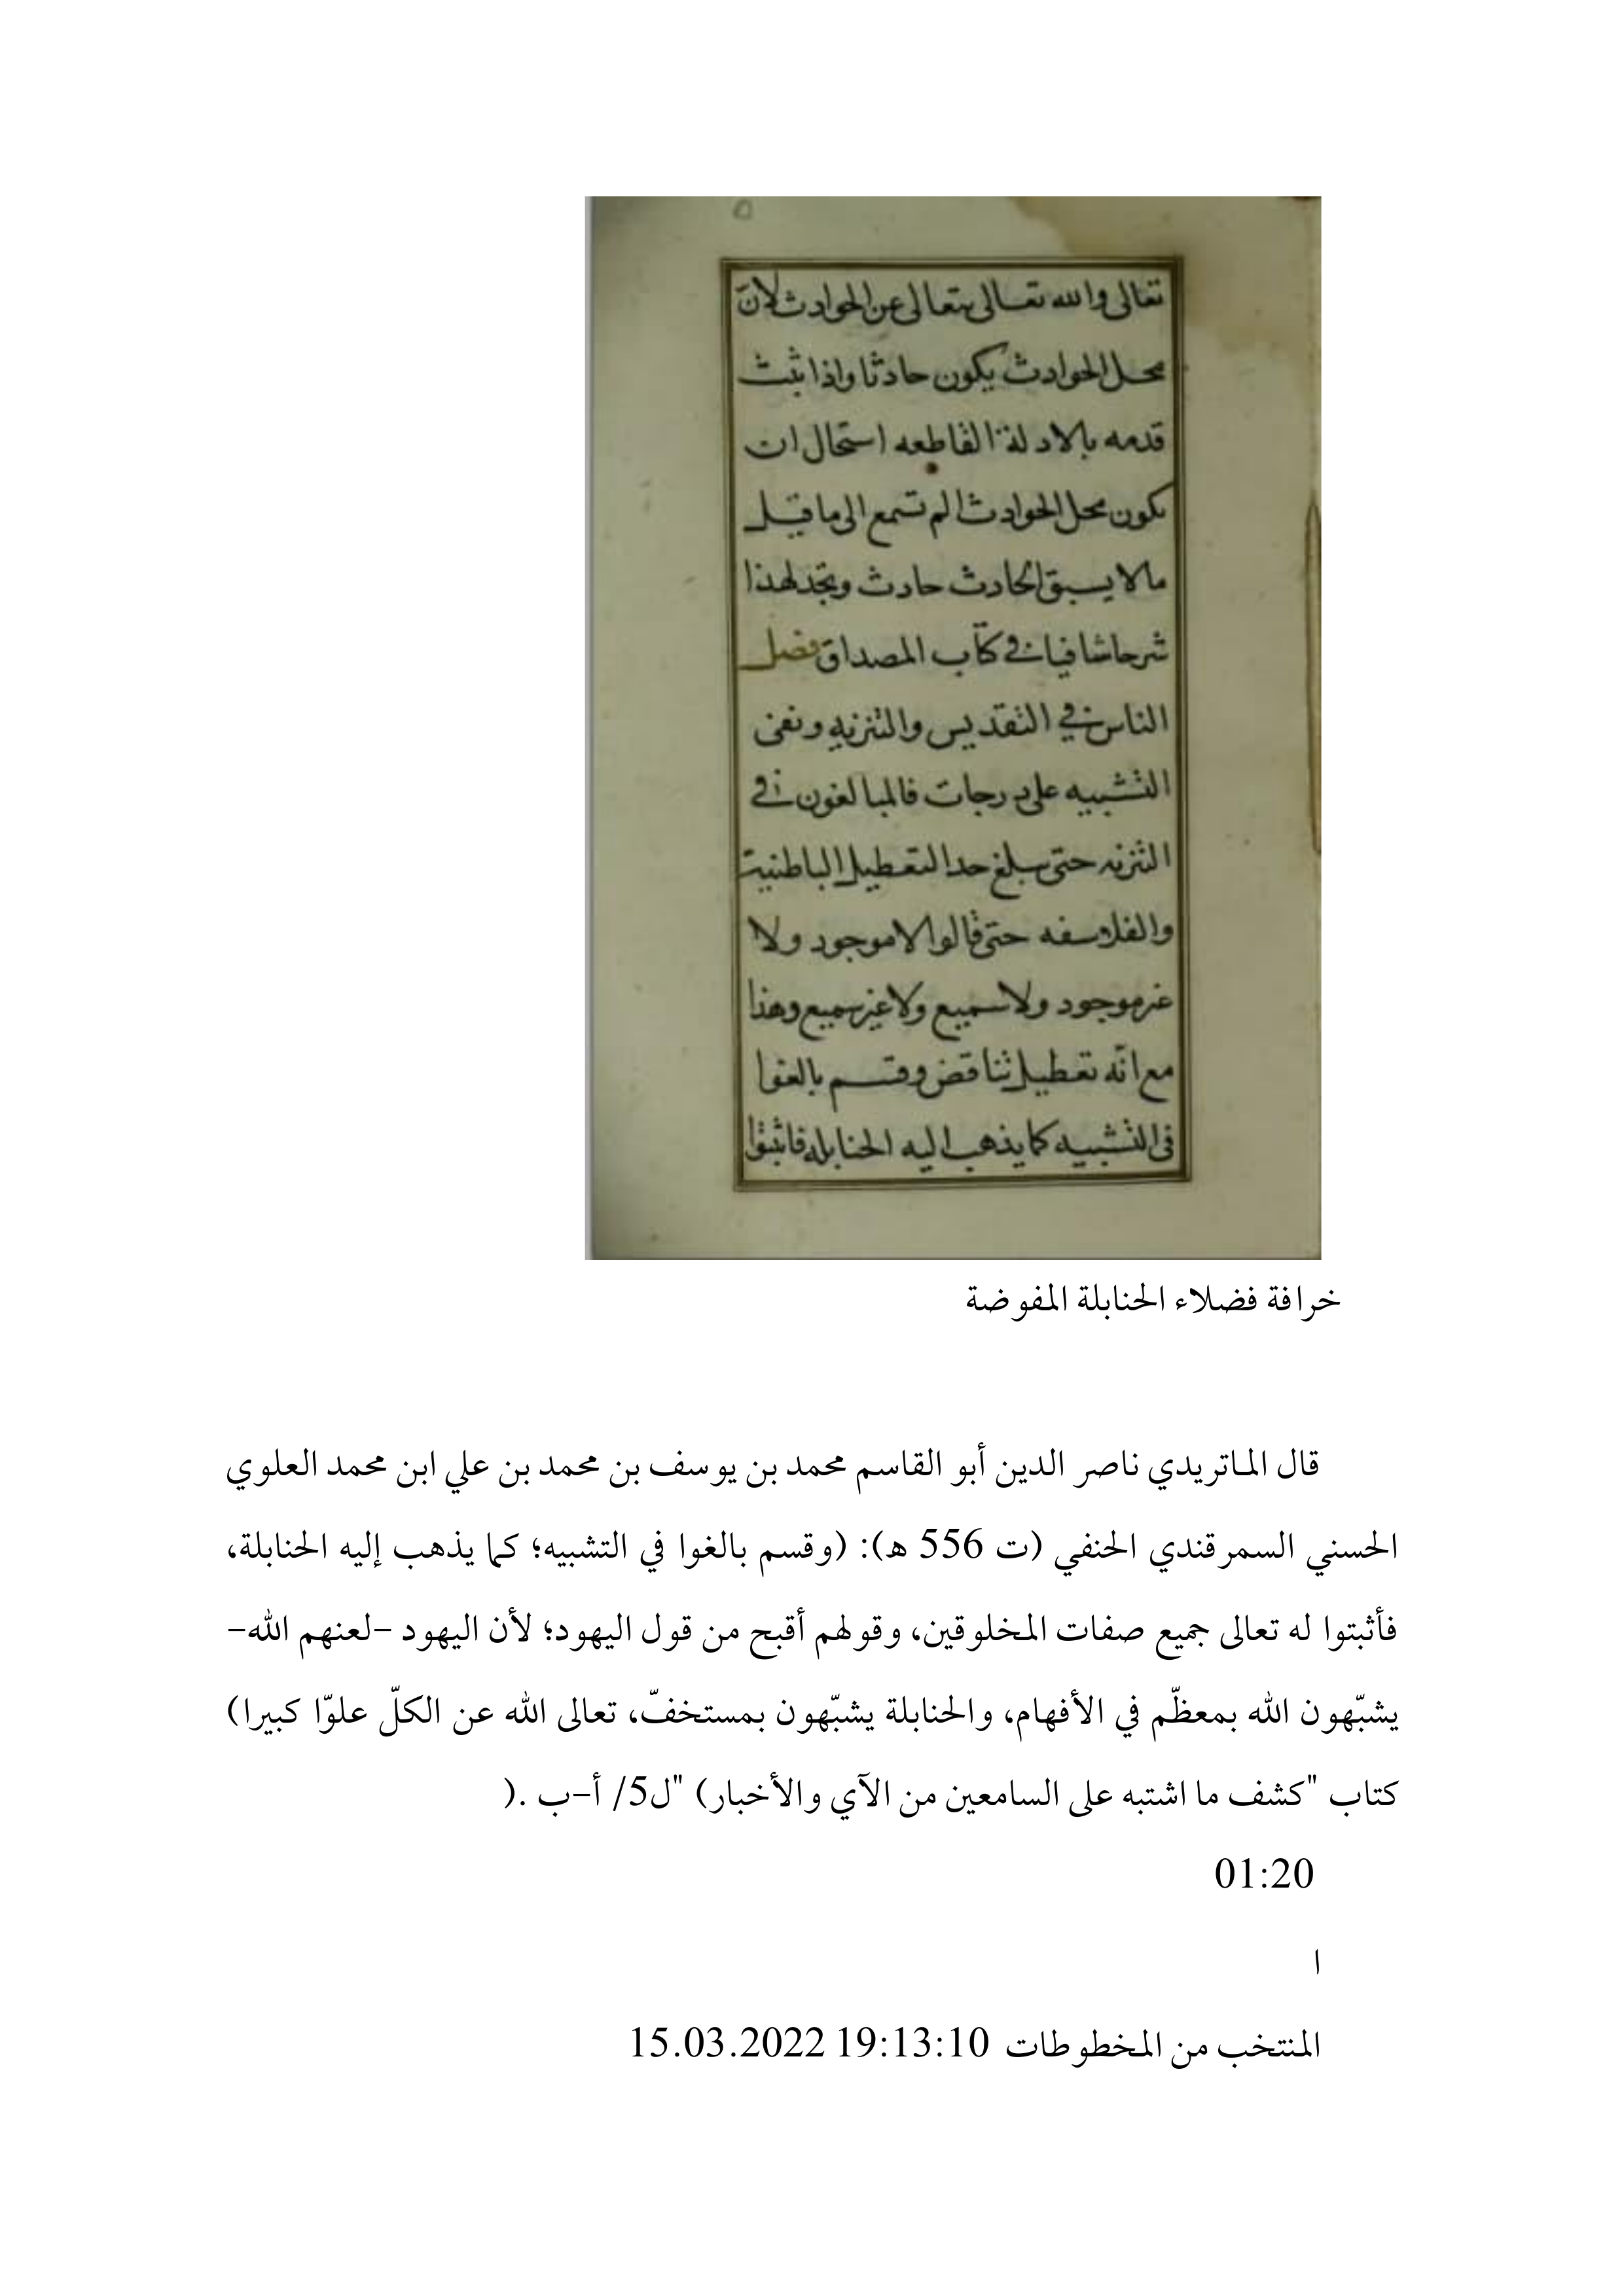 ٥
تعالى والله تعالى يتعالى عن الحوادث لان
محل الحوادث يكون حادثا واذا ثبت
قدمه بالادلة القاطعه استحال ان
يكون محل الحوادث الم تسمع الى ما قيل
مالا يسبق الحادث حادث وتجد لهذا
شرحا شافيا في كتاب المصداق فصل
الناس في التقديس والتنزيه ونفى
التشبيه على درجات فالمبالغون في
التنزيه حتى يبلغ حد التعطيل الباطنية
والفلاسفه حتى قالوا لا موجود ولا
غير موجود ولا سميع ولا غير سميع وهذا
مع انّه تعطيل تناقض وقسم بالغوا
فى التشبيه كما يذهب اليه الحنابله فاثبتوا
خرافة فضلاء الحنابلة المفوضة
قال الماتريدي ناصر الدين أبو القاسم محمد بن يوسف بن محمد بن علي ابن محمد العلوي
الحسني السمرقندي الحنفي (ت 556 ه): (وقسم بالغوا في التشبيه؛ كما يذهب إليه الحنابلة،
فأثبتوا له تعالى جميع صفات المخلوقين، وقولهم أقبح من قول اليهود؛ لأن اليهود -لعنهم الله-
يشبّهون الله بمعظّم في الأفهام، والحنابلة يشبّهون بمستخفّ، تعالى الله عن الكلّ علوّا كبيرا)
كتاب "كشف ما اشتبه على السامعين من الآي والأخبار) "ل5/ أ-ب .(
01:20
ا
المنتخب من المخطوطات 15.03.2022 19:13:10